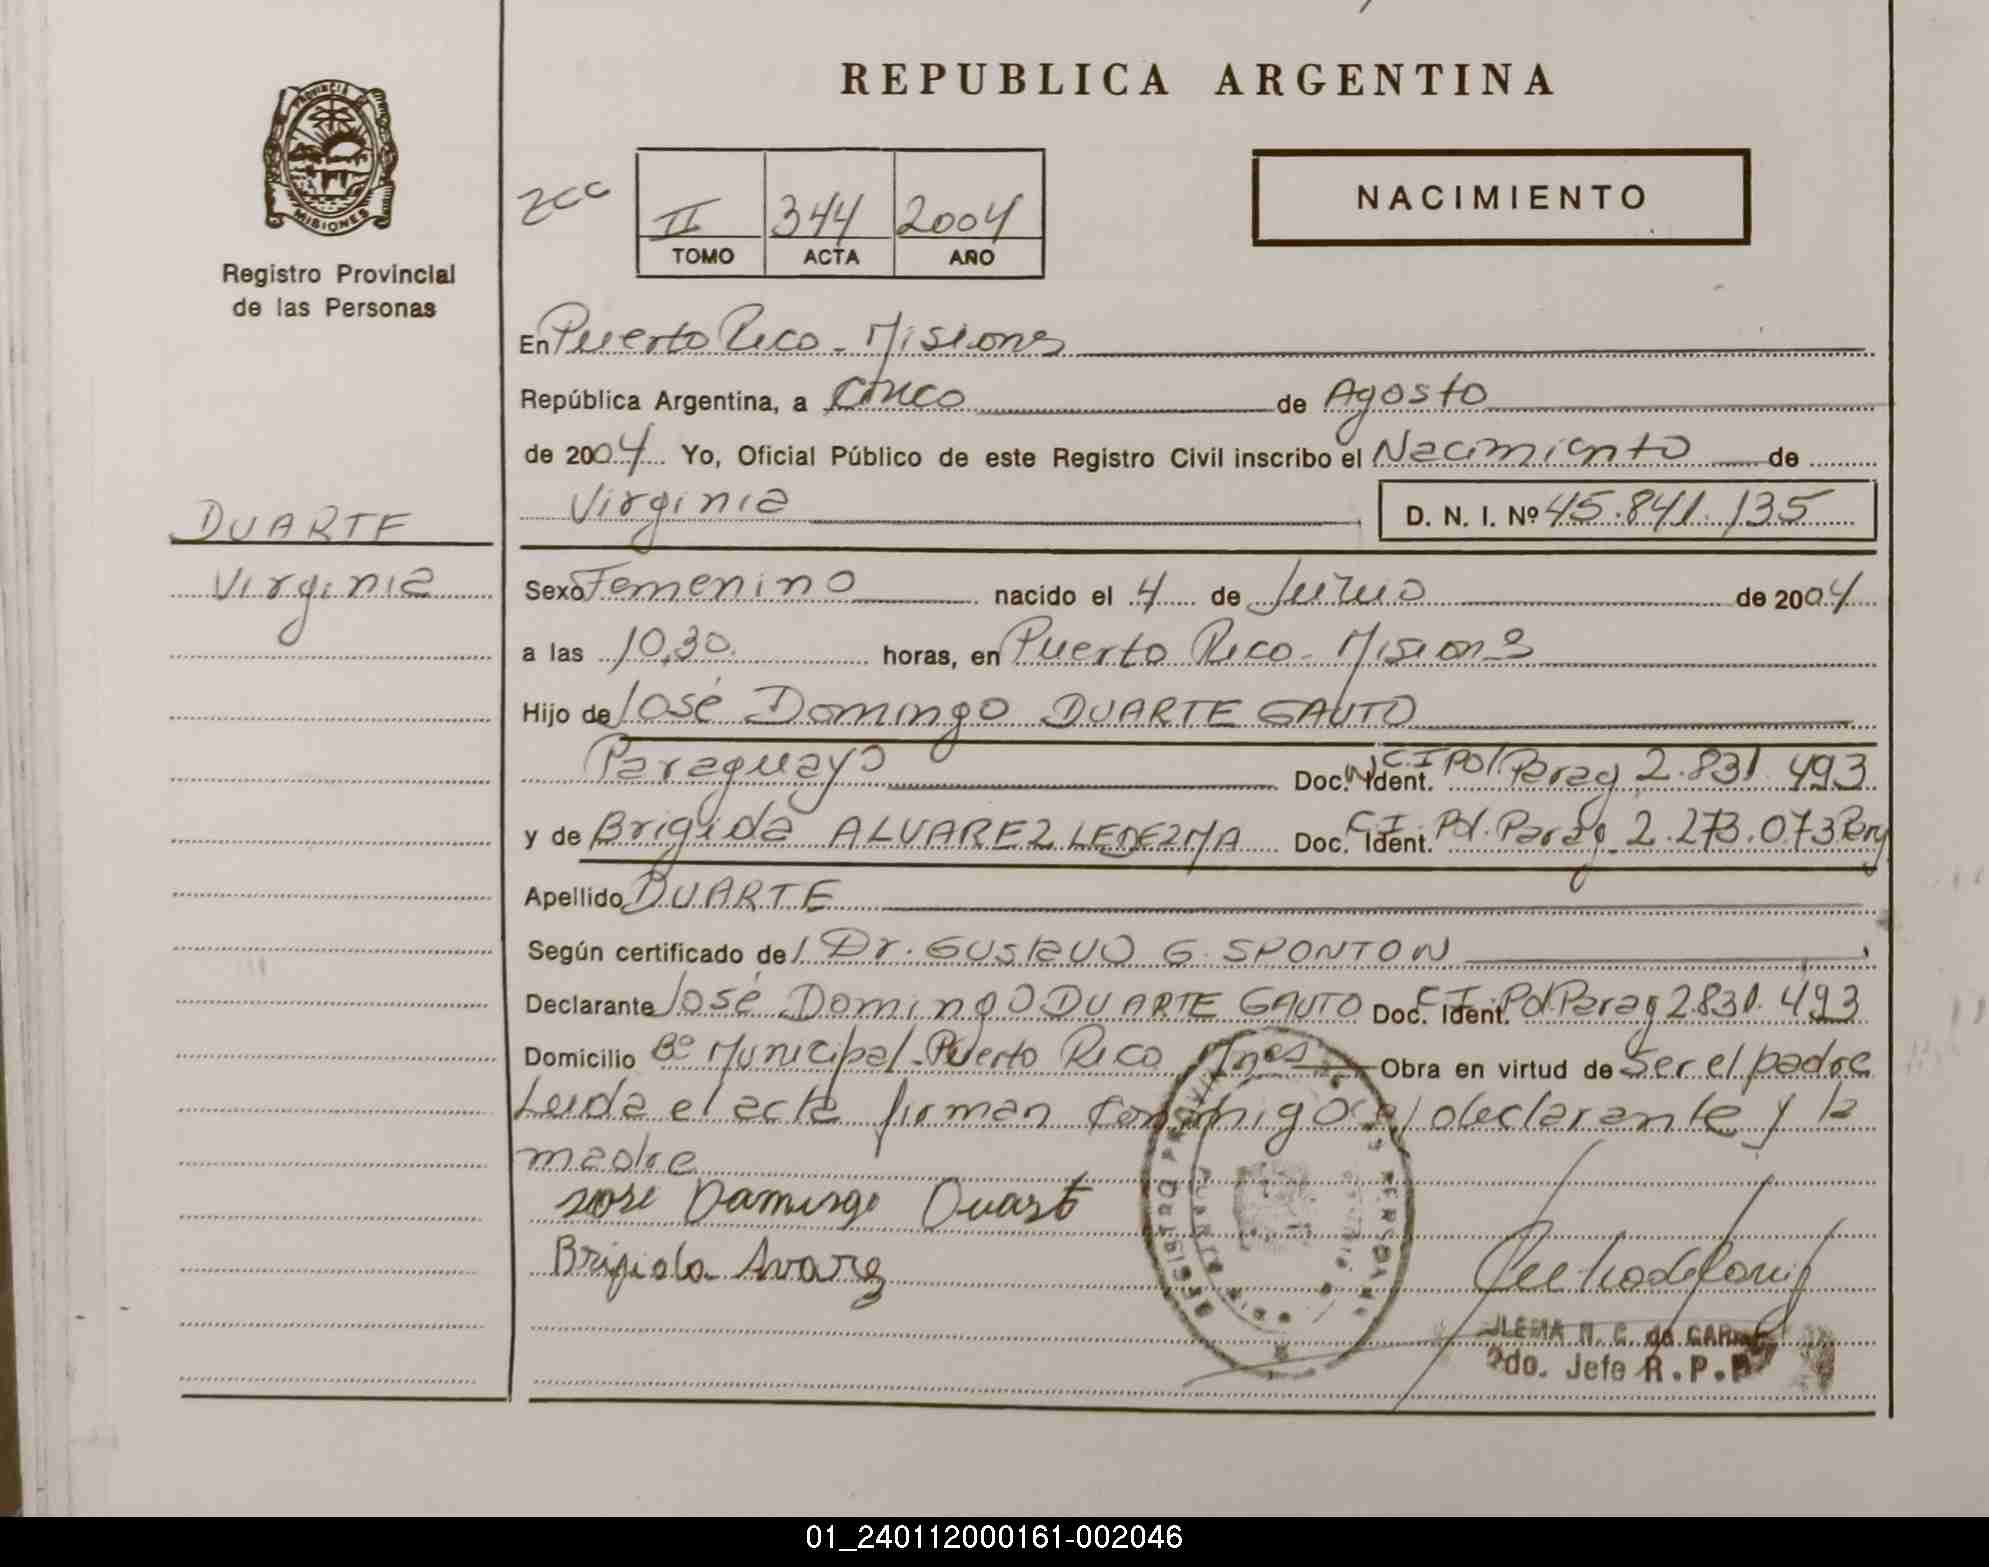 REPUBLICA ARGENTINA
PROVINCIA DE
MISIONES
Registro Provincial
de las Personas
II 344 2004
TOMO ACTA AÑO
NACIMIENTO
En Puerto Rico - Misiones
República Argentina, a Cinco de Agosto
de 2004 Yo, Oficial Público de este Registro Civil inscribo el Nacimiento de
Virginia D. N. I. Nº 45.841.135
DUARTE
Virginia
Sexo Femenino nacido el 4 de de 2004
a las 10,30 horas, en Puerto Rico - Misiones
Hijo de José Domingo DUARTE GAUTO
Paraguayo Doc. Ident. C.I Pol Parag 2.831.493
y de Brigida ALVAREZ LEDEZMA Doc. Ident. C.I. Pol. Parag. 2.273.073
Apellido DUARTE
Según certificado de Dr. Gustavo G. SPONTON
Declarante José Domingo DUARTE GAUTO Doc. Ident. C.I. Pol Parag 2.831.493
Domicilio Bº Municipal - Puerto Rico Mnes Obra en virtud de Ser el padre
Leida el acta firman conmigo el declarante y la
madre
Jose Damingo Duart
Brigida Avarez
REGISTRO PROVINCIAL DE LAS PERSONAS
2do. Jefe R.P.P
01_240112000161-002046